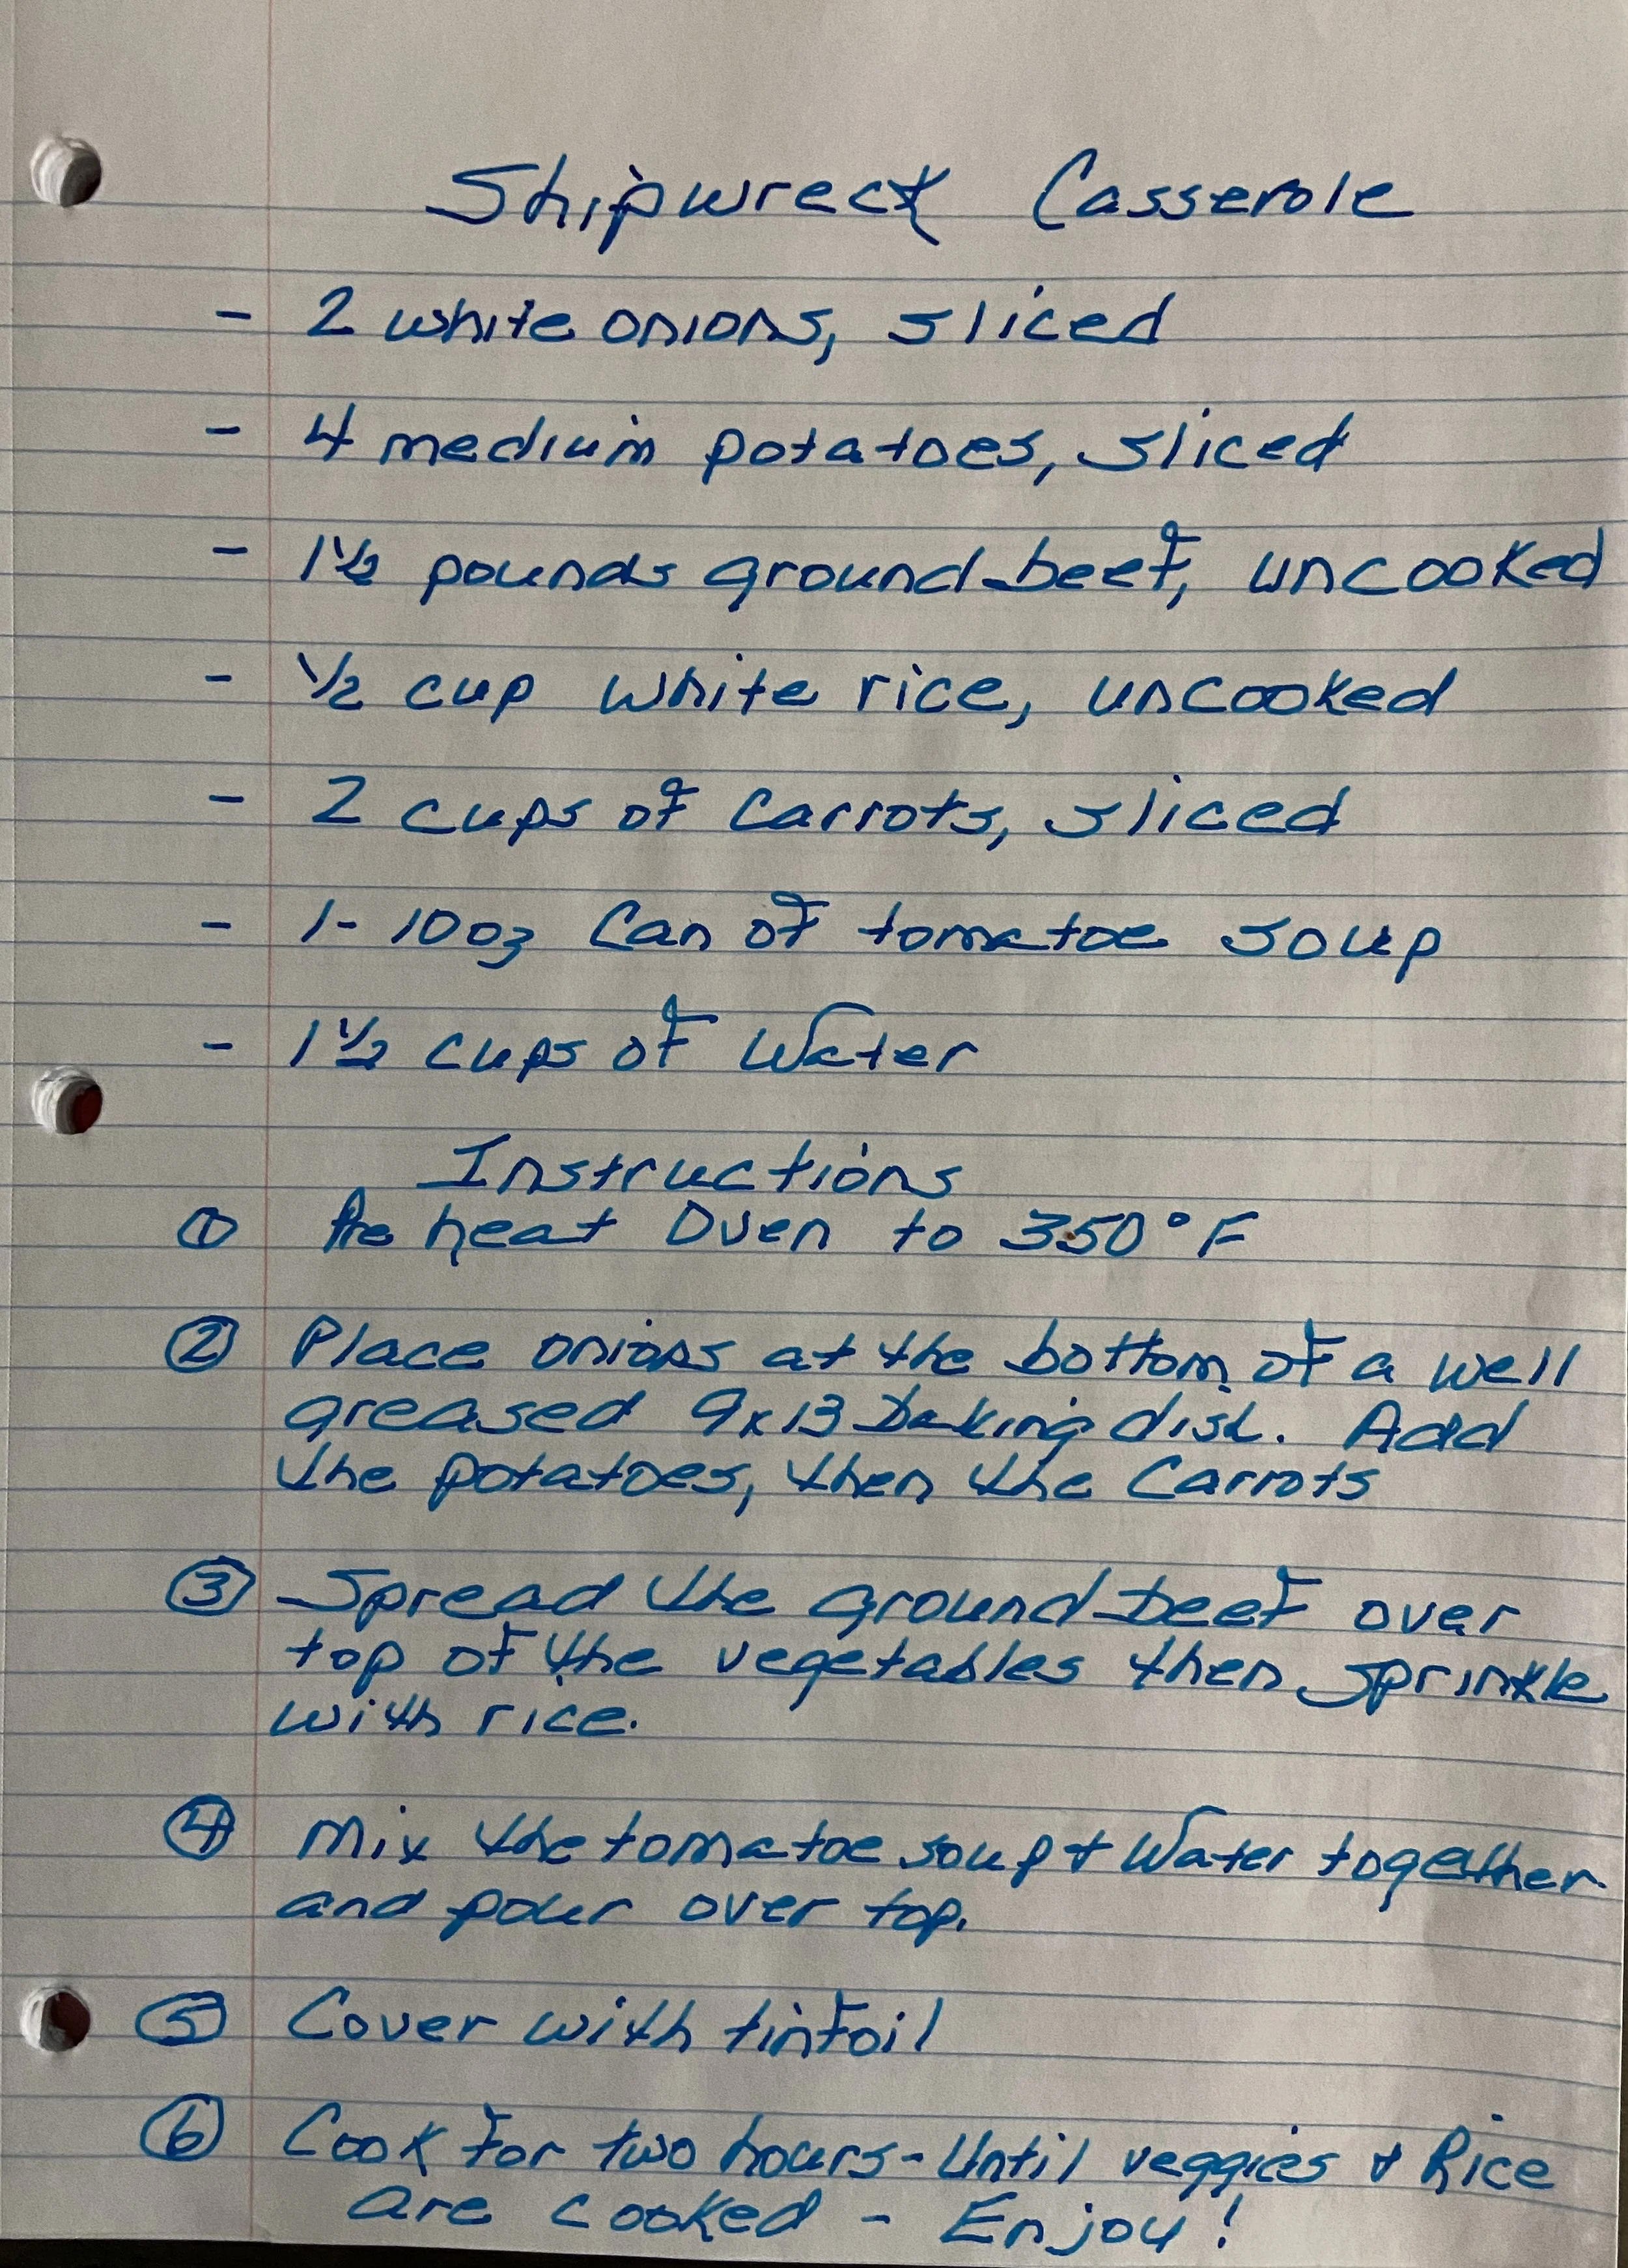 Shipwreck Casserole
- 2 white onions, sliced
- 4 medium potatoes, sliced
- 1 1/2 pounds ground beef, uncooked
- 1/2 cup white rice, uncooked
- 2 cups of Carrots, sliced
- 1- 10oz Can of tomatoe soup
- 1 1/2 cups of Water
Instructions
① Pre heat Oven to 350°F
② Place onions at the bottom of a well
greased 9x13 baking dish. Add
the potatoes, then the Carrots
③ Spread the ground beef over
top of the vegetables then sprinkle
with rice.
④ Mix the tomatoe soup + Water together
and pour over top.
⑤ Cover with tinfoil
⑥ Cook for two hours - Until veggies + Rice
are cooked - Enjoy!